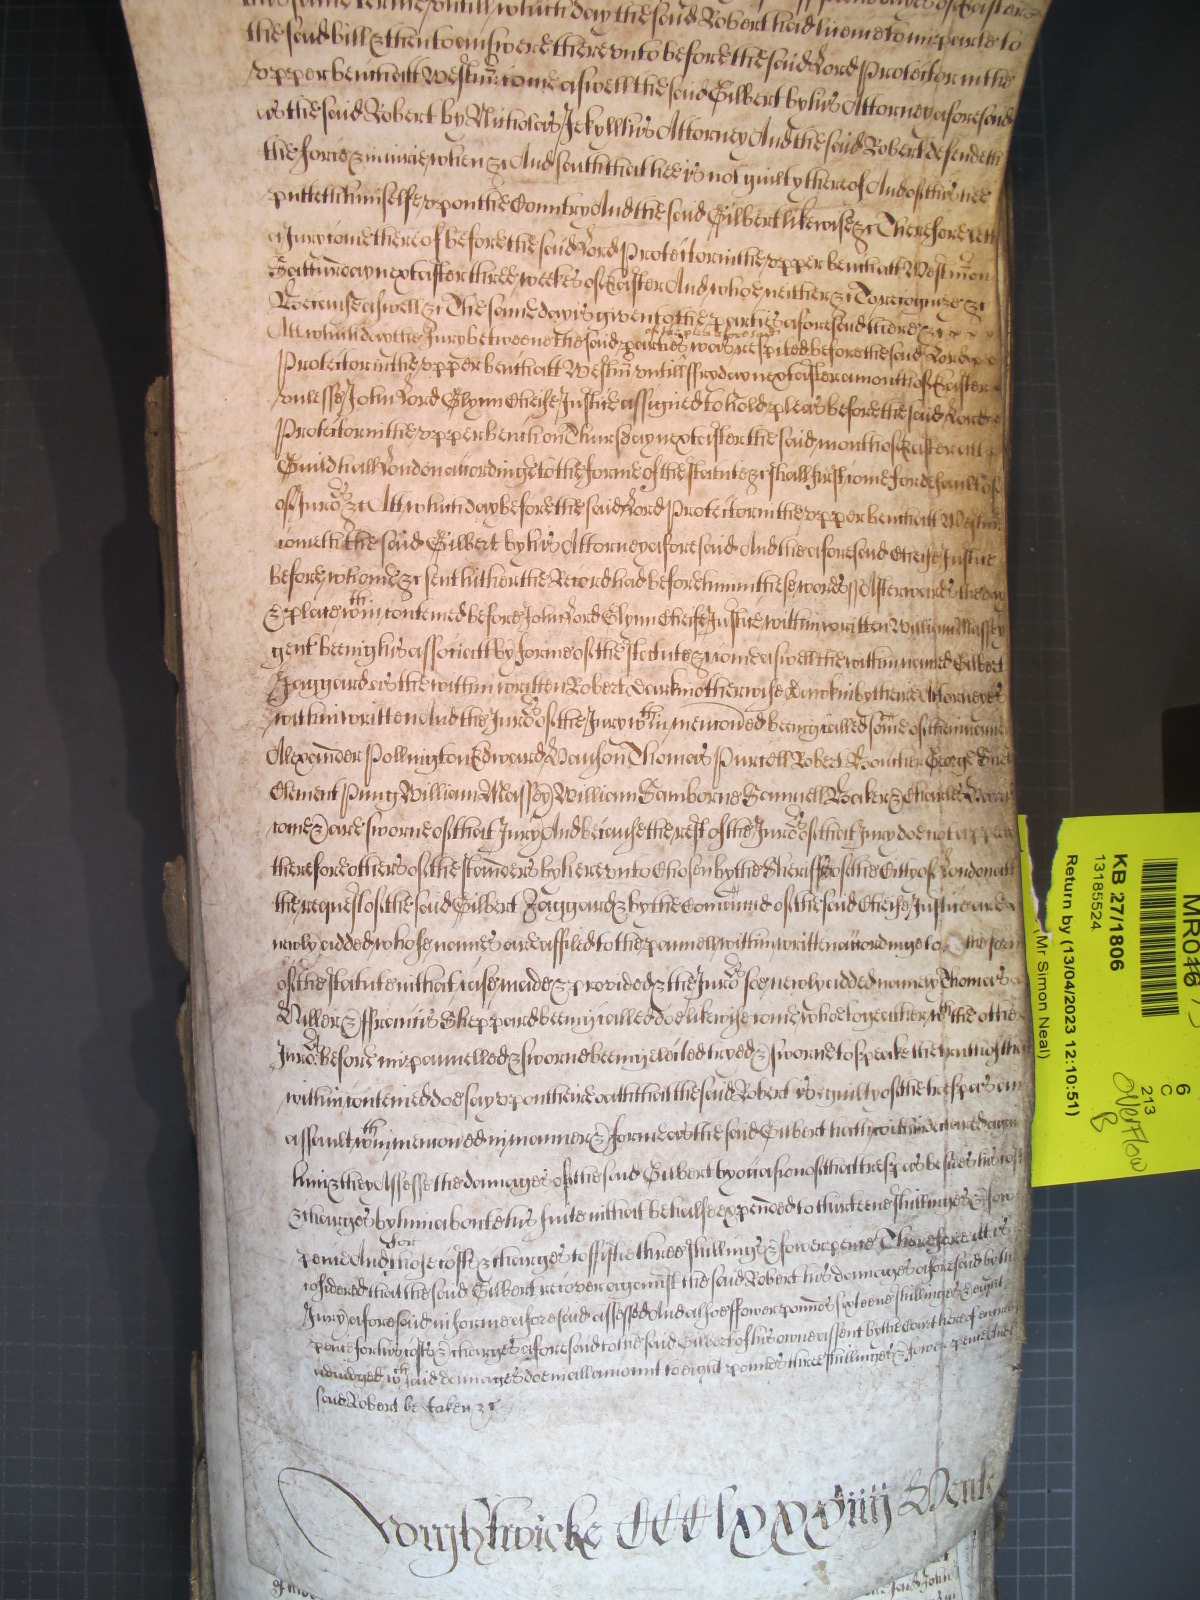 the same Terme untill which day the said Robert had licence to imparle to
the said bill & then to answere thereunto before the said Lord Protector in the
upper bench att Westm̄ come aswell the said Gilbert by his Attorney aforesaid
as the said Robert by Nicholas Jekyll his Attorney And the said Robert defendeth
the force & iniurie when &c And saith that hee is not guilty thereof And of this hee
putteth himselfe upon the Country And the said Gilbert likewise &c Therefore lett
a Jury come thereof before the said Lord Protector in the upper bench att Westm̄ on
Satturday next after three weekes of Easter And who neither &c To recognize &c
Because aswell &c The same day is given to the parties aforesaid there &c
Att which day the Jury betweene the said parties of the plea aforesaid was respited before the said Lord
Protector in the upper bench att Westm̄ untill ffryday next after a month of Easter
unlesse John Lord Glynn Cheife Justice assigned to hold pleas before the said Lord
Protector in the upper bench on Thursday next after the said month of Easter att
Guildhall London accordinge to the forme of the statute &c shall first come for default of
of Juroͬs &c Att which day before the said Lord Protector in the upper bench att Westm̄
cometh the said Gilbert by his Attorney aforesaid And the aforesaid Cheife Justice
before whome &c sent hither the Record had before him in these words // Afterwards the day
& place wᵗʰin conteined before John Lord Glynn Cheife Justice within written William Massey
gent being his associatt by forme of the statute &c come aswell the within named Gilbert
Jaggard as the within written Robert otherwise by theire Attorneyes
within written And the Juroͬs of the Jury wᵗʰin menc̄oned being called some of them
Alexander Pollington Edward Thomas Purcell Robert Boucher George
Clement Pung William Massey William Samborne Samuell Baker & Charles
come & are sworne of that Jury And because the rest of the Juroͬs of that Jury doe not appeare
therefore others of the standers by hereunto Chosen by the Sheriffes of the City of London att
the request of the said Gilbert Jaggard & by the Com̄aund of the said Cheife Justice are a
newly added whose names are affiled to the pannell within written accordinge to the forme
of the statute in that case made & provided & the Juroͬs soe newly added namely Thomas
& ffrancis Sheppard being called doe likewise come who togeather wᵗʰ the other
Juroͬs before impannelled & sworne being elected tryed & sworne to speake the truth of the
within conteined doe say upon theire oath that the said Robert is guilty of the trespas and
assault wᵗʰin menc̄oned in manner & forme as the said Gilbert hath within declared against
him & they Assesse the damages of the said Gilbert by occasion of that trespas besides his costs
& charges by him about his suite in that behalfe expended to thirteene shillinges & fower
pence And for those costs & charges to fiftie three shillings & fower pence Therefore itt is
considered that the said Gilbert recover against the said Robert his damages aforesaid by the
Jury aforesaid in forme aforesaid assessed And alsoe ffower pounds sixteene shillinges & eight
pence for his costs & charges aforesaid to the said Gilbert of his owne assent by the Court here of encrease
adiudged wᶜʰ said damages doe in all amount to eight pounds three shillinges & fower pence And the
said Robert be taken &c
Wightwicke CCClxxxviiij
MR016
KB 27/1806
13185524
Return by (13/04/2023 12:10:51)
(Mr Simon Neal)
6
C
213
overflow
B